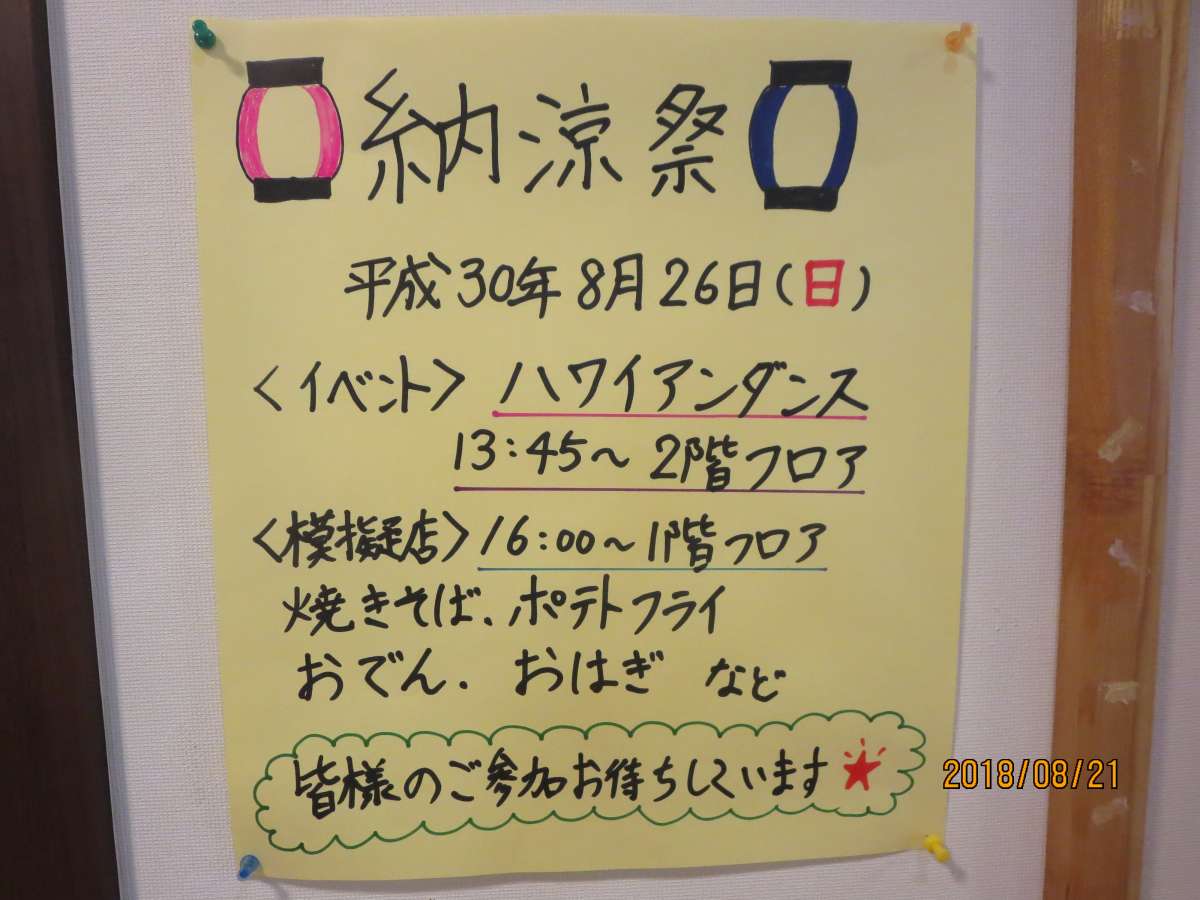 納涼祭
平成30年8月26日(日)
〈イベント〉ハワイアンダンス
13:45〜 2階フロア
〈模擬店〉16:00〜1階フロア
焼きそば、ポテトフライ
おでん、おはぎ など
皆様のご参加お待ちしています
2018/08/21